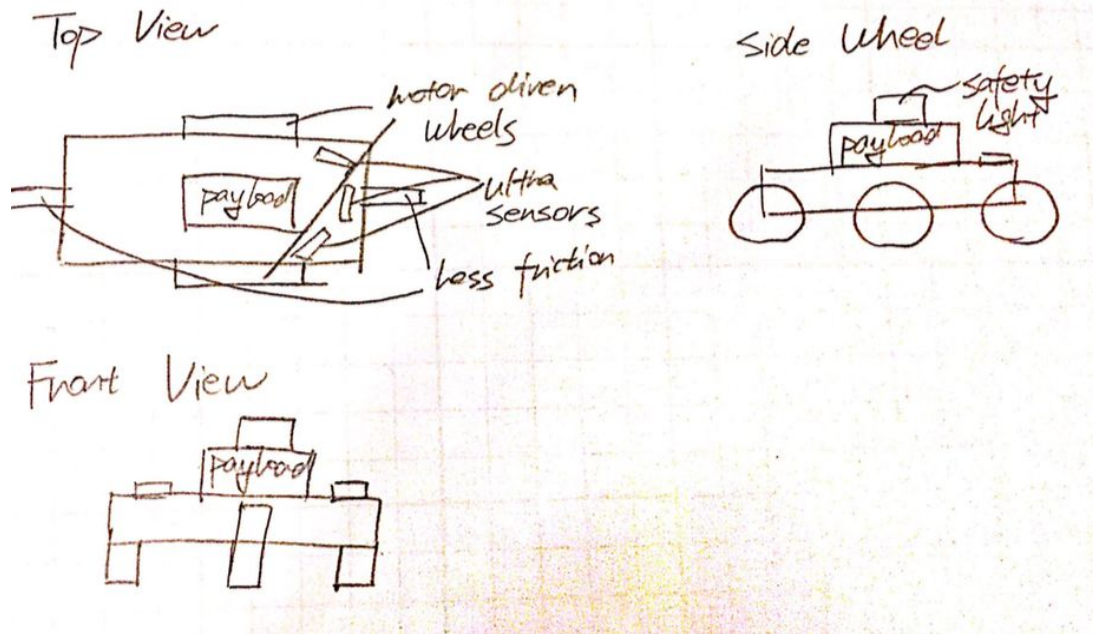 Top View
motor driven
wheels
payload
ultra
sensors
less friction
Side Wheel
safety
light
payload
Front View
payload